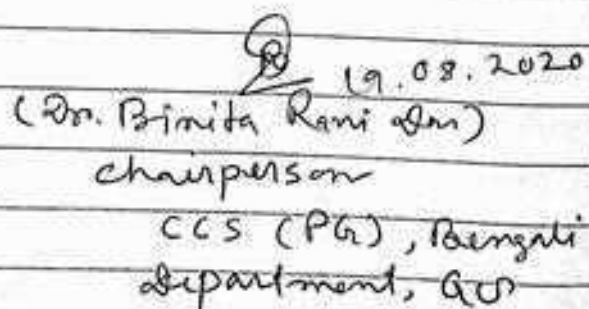 19.08.2020
(Dr. Binita Rani Das)
chairperson
CCS (PG), Bengali
Department, GU